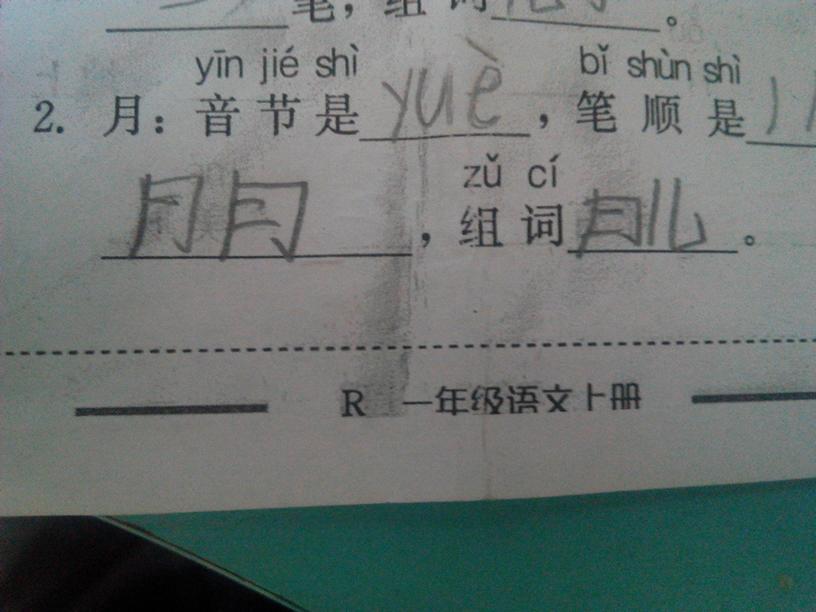 笔，组词
。
yīn jié shì yuè bǐ shùn shì
2. 月：音节是yuè，笔顺是丿
zǔ cí
月月，组词月儿。
R 一年级语文上册